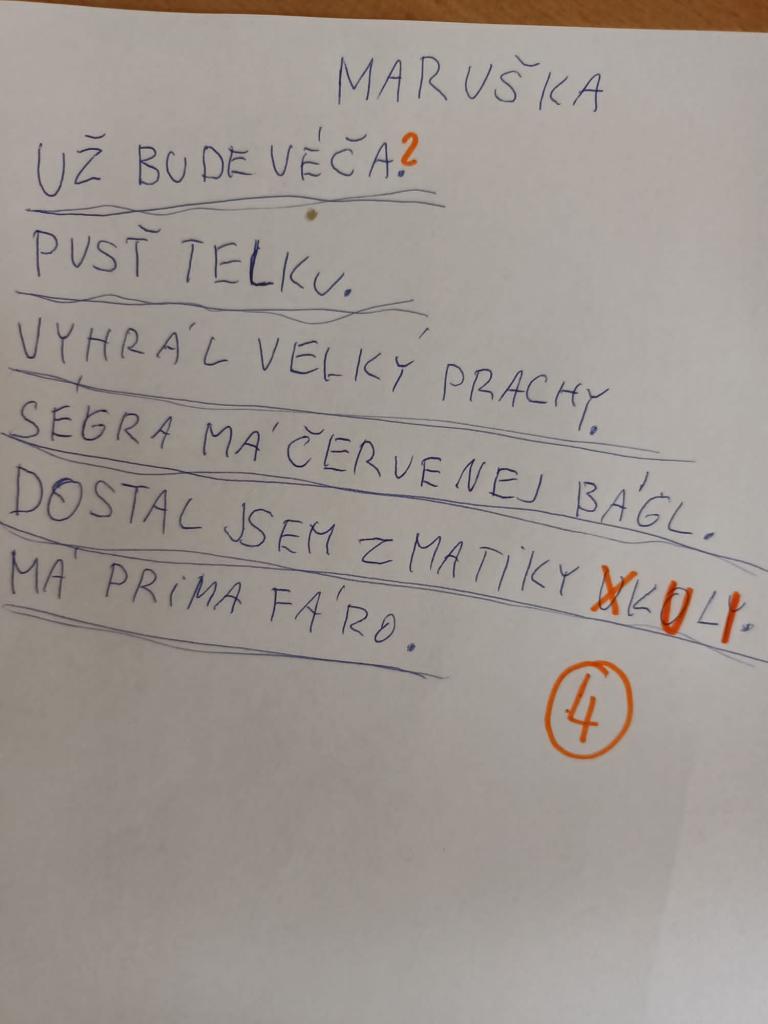 MARUŠKA
UŽ BUDE VÉČA?
PUSŤ TELKU.
VYHRÁL VELKÝ PRACHY.
SÉGRA MÁ ČERVENEJ BÁGL.
DOSTAL JSEM Z MATIKY KULI.
MÁ PRIMA FÁRO.
4